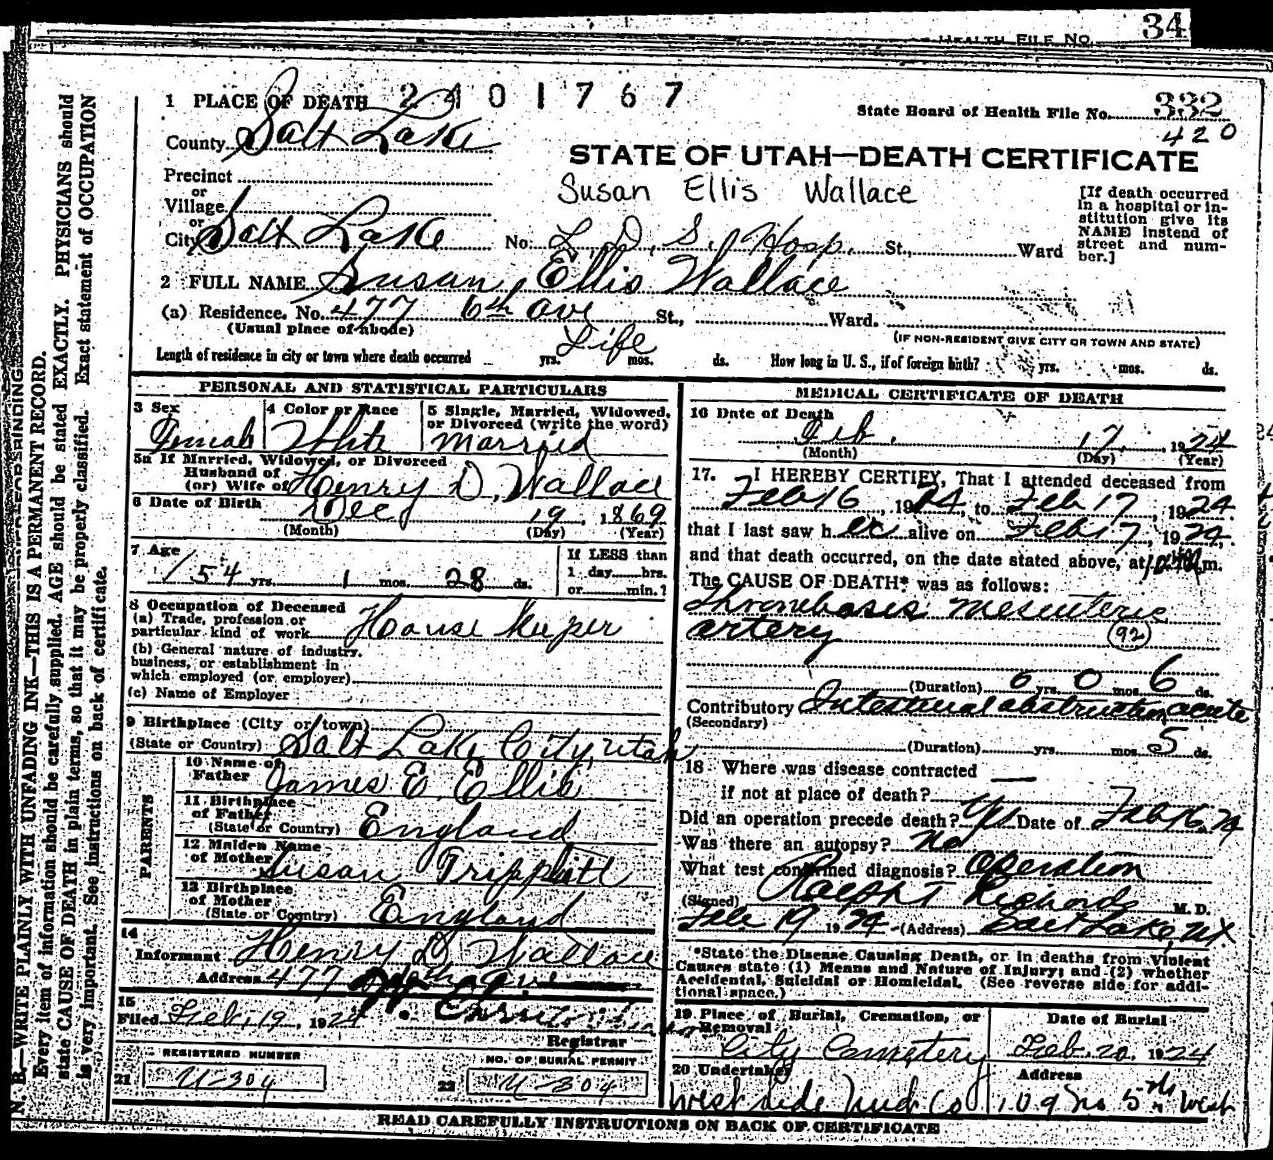 34
HEALTH FILE NO.
1 PLACE OF DEATH 2401767
State Board of Health File No. 332
420
County Salt Lake
STATE OF UTAH—DEATH CERTIFICATE
Precinct
or
Village
or
City Salt Lake
Susan Ellis Wallace
[If death occurred in a hospital or institution give its NAME instead of street and number.]
No. L. D. S. Hosp. St., Ward
2 FULL NAME Susan Ellis Wallace
(a) Residence. No. 477 6th ave St., Ward.
(Usual place of abode)
(IF NON-RESIDENT GIVE CITY OR TOWN AND STATE)
Length of residence in city or town where death occurred Life yrs. mos. ds. How long in U. S., if of foreign birth? yrs. mos. ds.
PERSONAL AND STATISTICAL PARTICULARS
3 Sex Female
4 Color or Race White
5 Single, Married, Widowed, or Divorced (write the word) Married
5a If Married, Widowed, or Divorced
Husband of
(or) Wife of Henry D. Wallace
6 Date of Birth Dec 19, 1869
(Month) (Day) (Year)
7 Age 54 yrs. 1 mos. 28 ds.
If LESS than
1 day hrs.
or min.?
8 Occupation of Deceased
(a) Trade, profession or
particular kind of work House keeper
(b) General nature of industry,
business, or establishment in
which employed (or employer)
(c) Name of Employer
9 Birthplace (City or town)
(State or Country) Salt Lake City, Utah
PARENTS
10 Name of
Father James E. Ellis
11 Birthplace
of Father
(State or Country) England
12 Maiden Name
of Mother Susan
13 Birthplace
of Mother
(State or Country) England
14
Informant Henry D Wallace
Address 477
15
Filed Feb. 19, 1924
Registrar
REGISTERED NUMBER
21 U-304
NO. OF BURIAL PERMIT
22 U-304
MEDICAL CERTIFICATE OF DEATH
16 Date of Death
Feb. 17, 1924
(Month) (Day) (Year)
17. I HEREBY CERTIFY, That I attended deceased from
Feb 16, 1924, to Feb 17, 1924
that I last saw her alive on Feb 17, 1924,
and that death occurred, on the date stated above, at m.
The CAUSE OF DEATH* was as follows:
Thrombosis Mesenteric
artery
92
(Duration) 0 yrs. 0 mos. 6 ds.
Contributory Intestinal obstruction acute
(Secondary)
(Duration) yrs. mos. 5 ds.
18 Where was disease contracted
if not at place of death?
Did an operation precede death? Yes Date of Feb 16, 24
Was there an autopsy? No
What test confirmed diagnosis? Operation
(Signed) Ralph T Richards M. D.
Feb 19 1924 (Address) Salt Lake, Ut
*State the Disease Causing Death, or in deaths from Violent
Causes state (1) Means and Nature of Injury; and (2) whether
Accidental, Suicidal or Homicidal. (See reverse side for addi-
tional space.)
19 Place of Burial, Cremation, or
Removal
City Cemetery
Date of Burial
Feb. 20, 1924
20 Undertaker
West Side Und Co
Address
109 No 5th West
READ CAREFULLY INSTRUCTIONS ON BACK OF CERTIFICATE
N. B.—WRITE PLAINLY WITH UNFADING INK—THIS IS A PERMANENT RECORD.
Every item of information should be carefully supplied. AGE should be stated EXACTLY. PHYSICIANS should
state CAUSE OF DEATH in plain terms, so that it may be properly classified. Exact statement of OCCUPATION
is very important. See instructions on back of certificate.